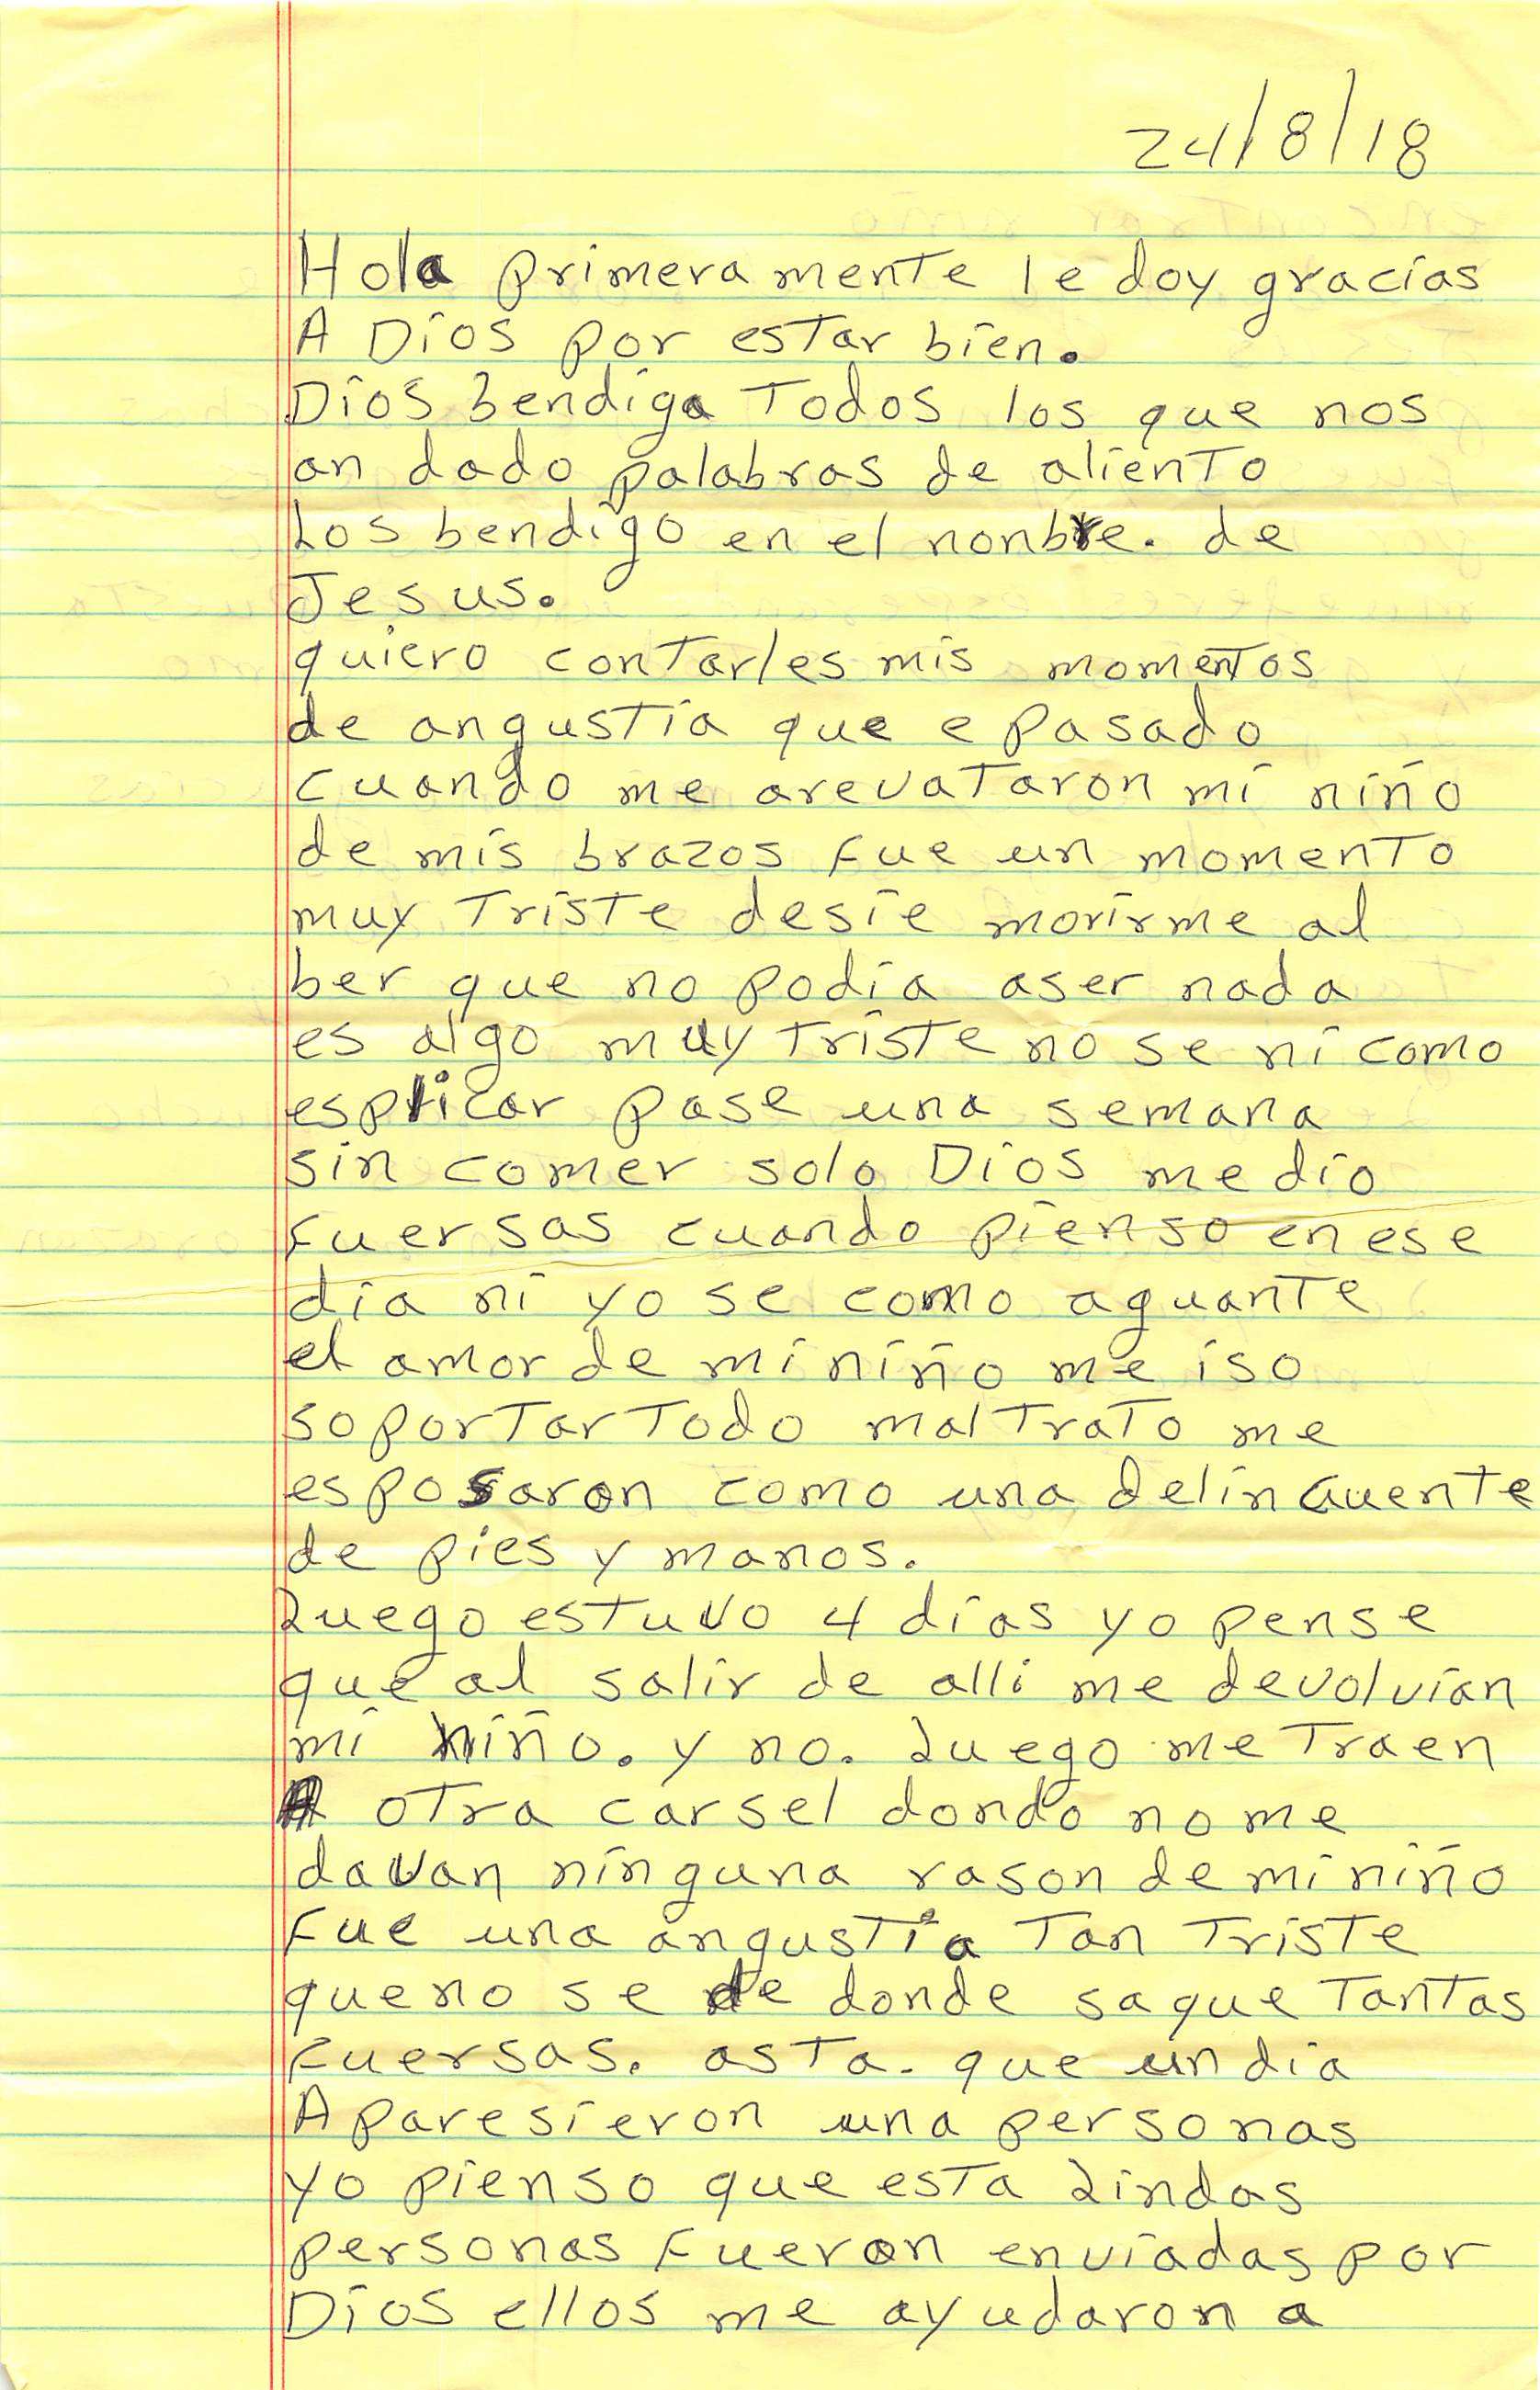 24/8/18
Hola primeramente le doy gracias
A Dios por estar bien.
Dios Bendiga Todos los que nos
an dado palabras de aliento
Los bendigo en el nonbre. de
Jesus.
quiero contarles mis momentos
de angustia que e pasado
cuando me arevataron mi niño
de mis brazos fue un momento
muy triste desie morirme al
ber que no podia aser nada
es algo muy triste no se ni como
esplicar pase una semana
sin comer solo Dios me dio
fuersas cuando pienso en ese
dia ni yo se como aguante
el amor de mi niño me iso
soportar todo maltrato me
esposaron como una delincuente
de pies y manos.
Luego estuvo 4 dias yo pense
que al salir de alli me devolvian
mi niño. y no. Luego me traen
A otra carsel dondo no me
davan ninguna rason de mi niño
fue una angustia tan triste
que no se de donde saque tantas
fuersas. asta. que un dia
Aparesieron una personas
yo pienso que esta Lindas
personas fueron enviadas por
Dios ellos me ayudaron a